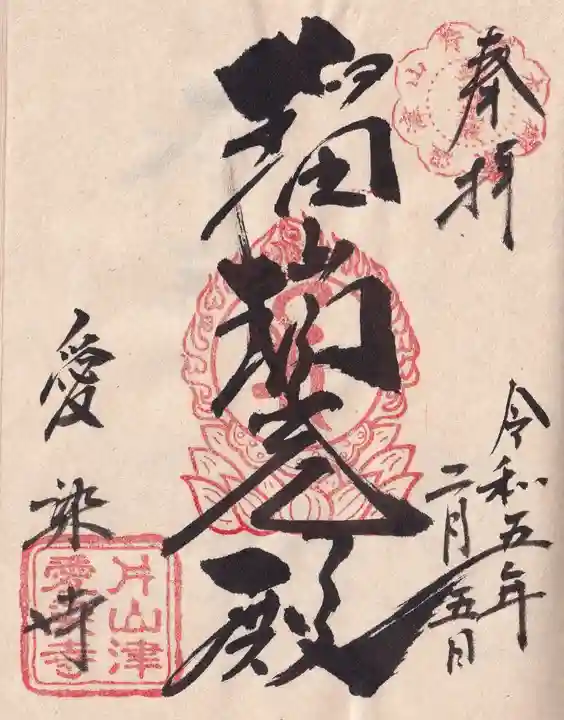 奉拝
令和五年
二月五日
瑠璃光殿
愛染寺
片山津
愛染寺